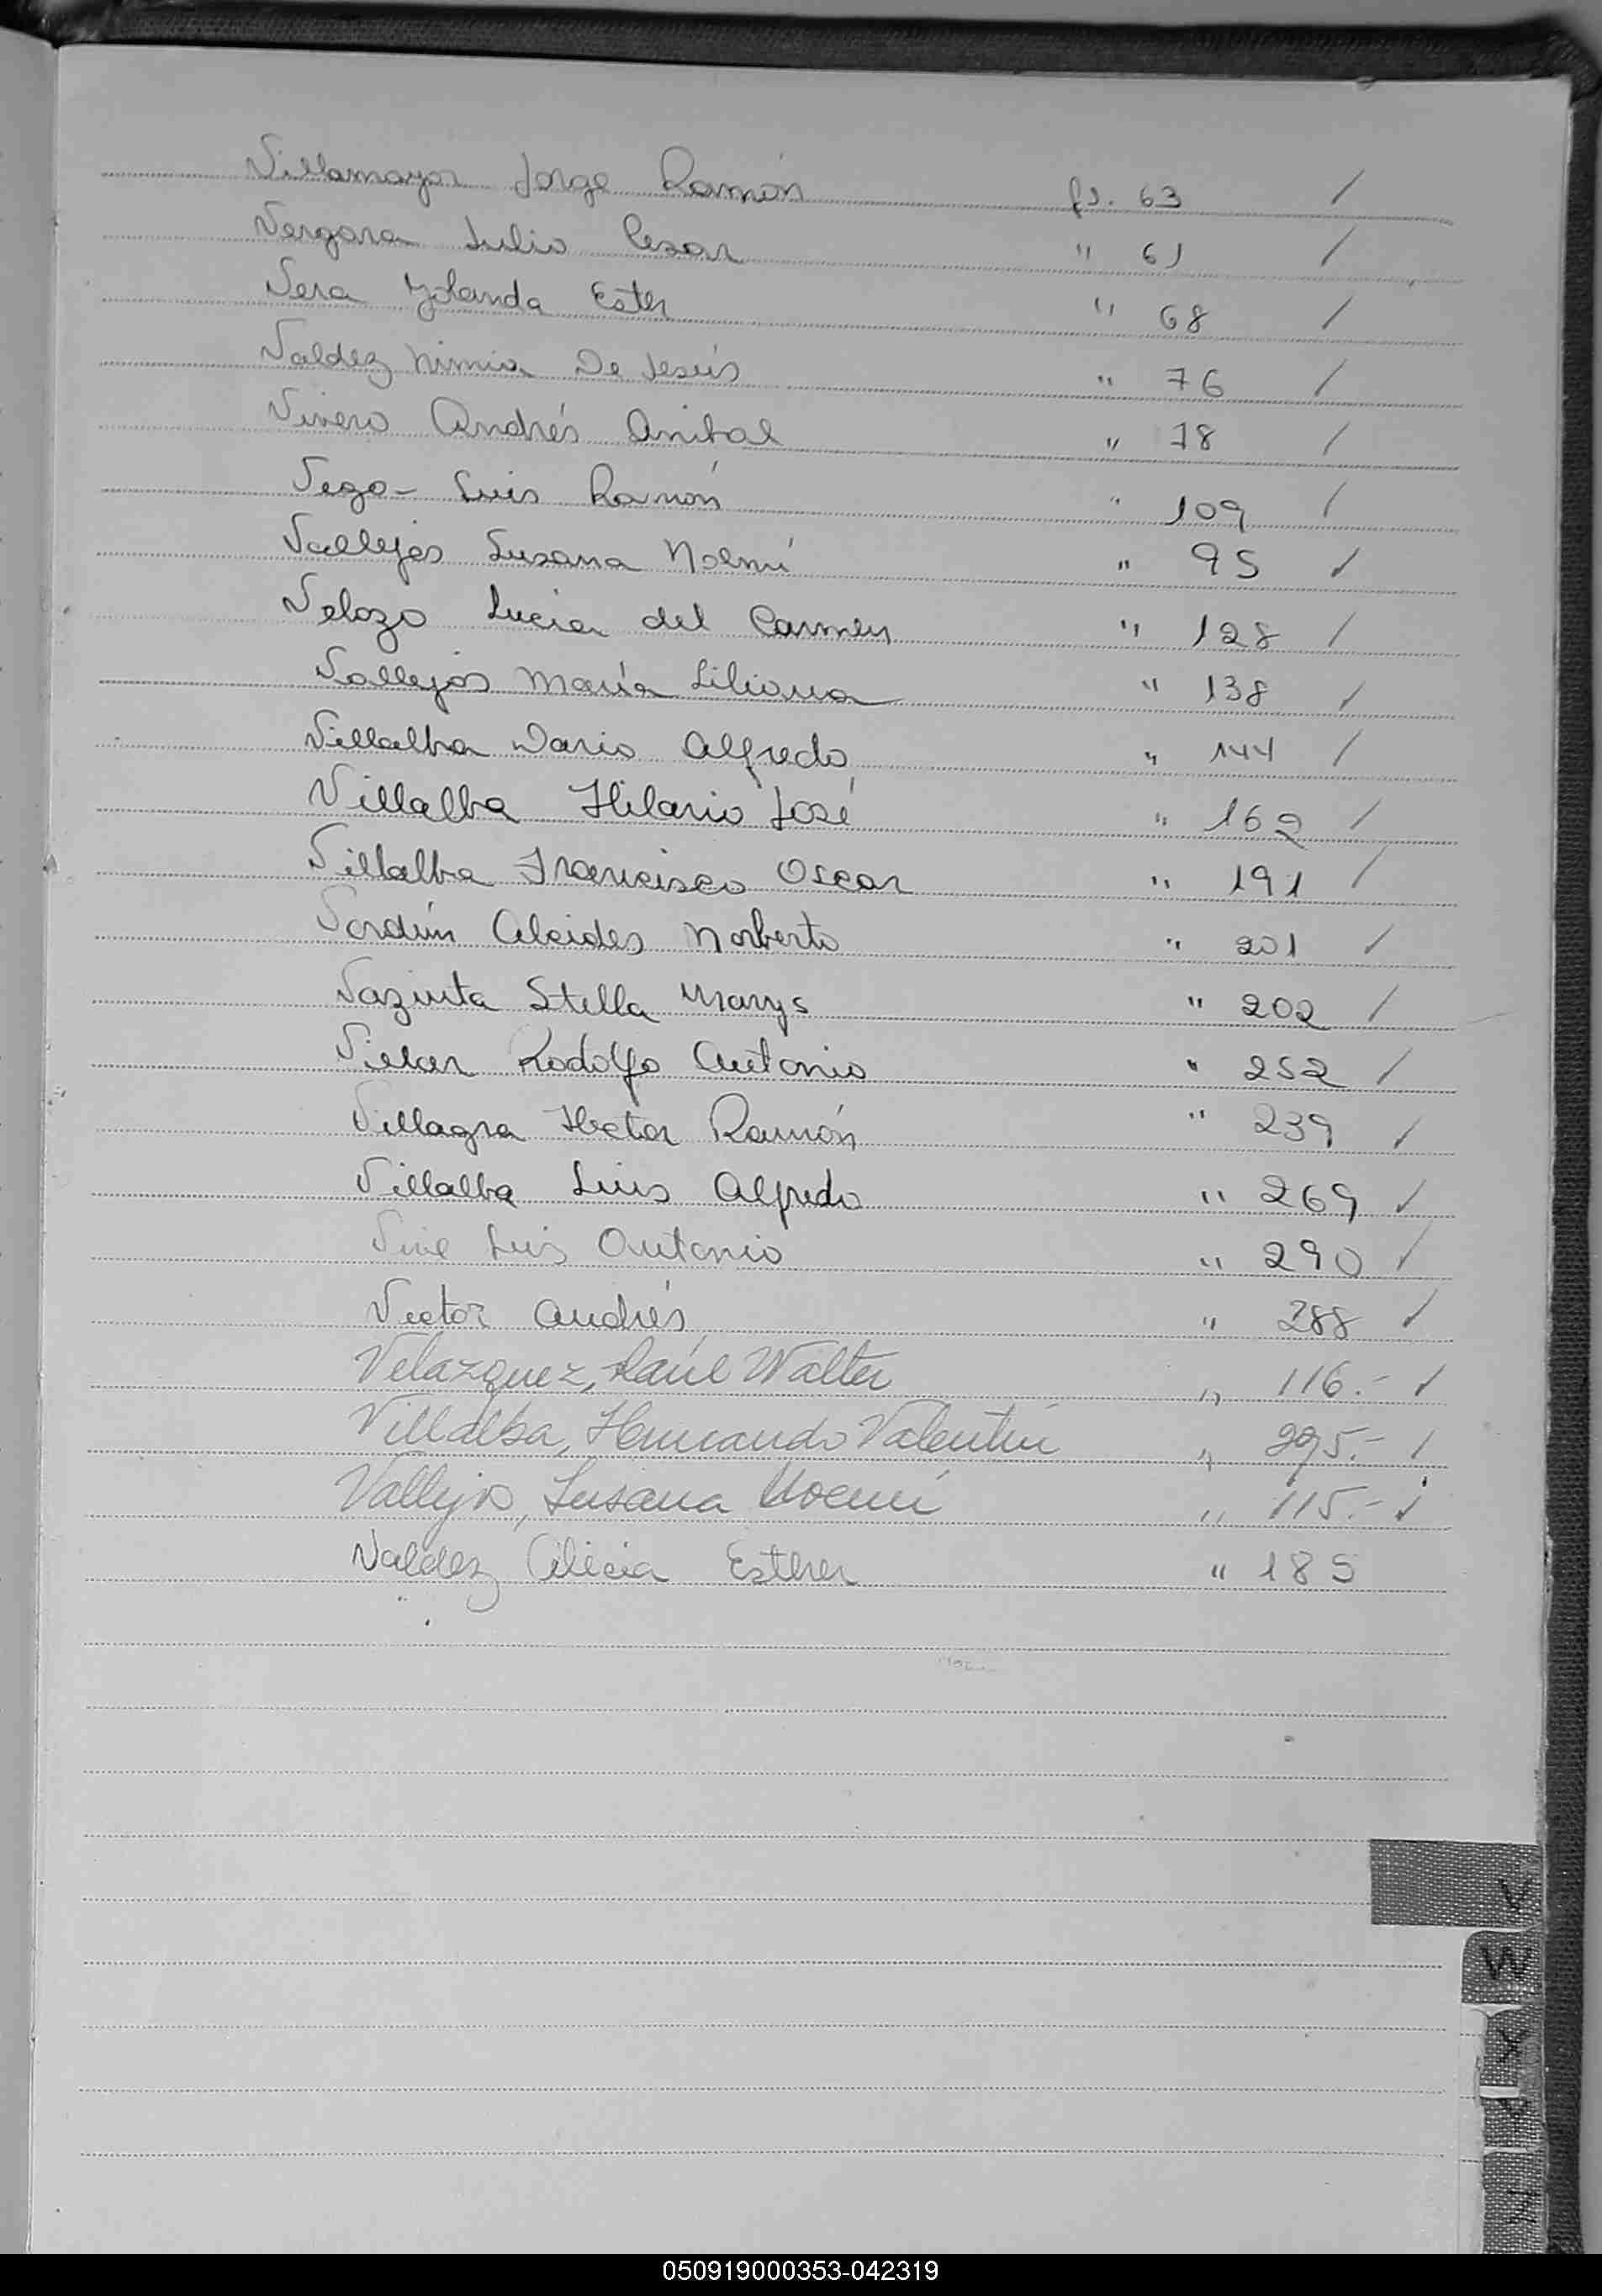 Villamayor Jorge Ramón fs. 63 /
Vergara Julio Cesar " 61 /
Vera Yolanda Ester " 68 /
Valdez Nimia De Jesús " 76 /
Vivero Andrés Anibal " 78 /
Vega - Luis Ramón " 109 /
Vallejos Susana Noemí " 95 /
Velozo Lucia del Carmen " 128 /
Vallejos María Liliana " 138 /
Villalba Dario Alfredo " 144 /
Villalba Hilario José " 162 /
Villalba Francisco Oscar " 191 /
Verdún Alcides Norberto " 201 /
Stella Marys " 202 /
Rodolfo Antonio " 252 /
Villagra Hector Ramón " 239 /
Villalba Luis Alfredo " 269 /
Luis Antonio " 290 /
Victor Andrés " 288 /
Velazquez, Raúl Walter " 116.- /
Villalba, Hernando Valentín " 295.- /
Vallejo, Susana Noemí " 115.- /
Valdez Alicia Esther " 185
V
W
X
Y
Z
050919000353-042319